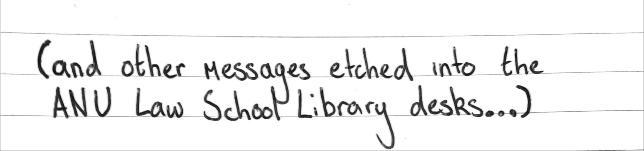 (and other messages etched into the
ANU Law School Library desks...)